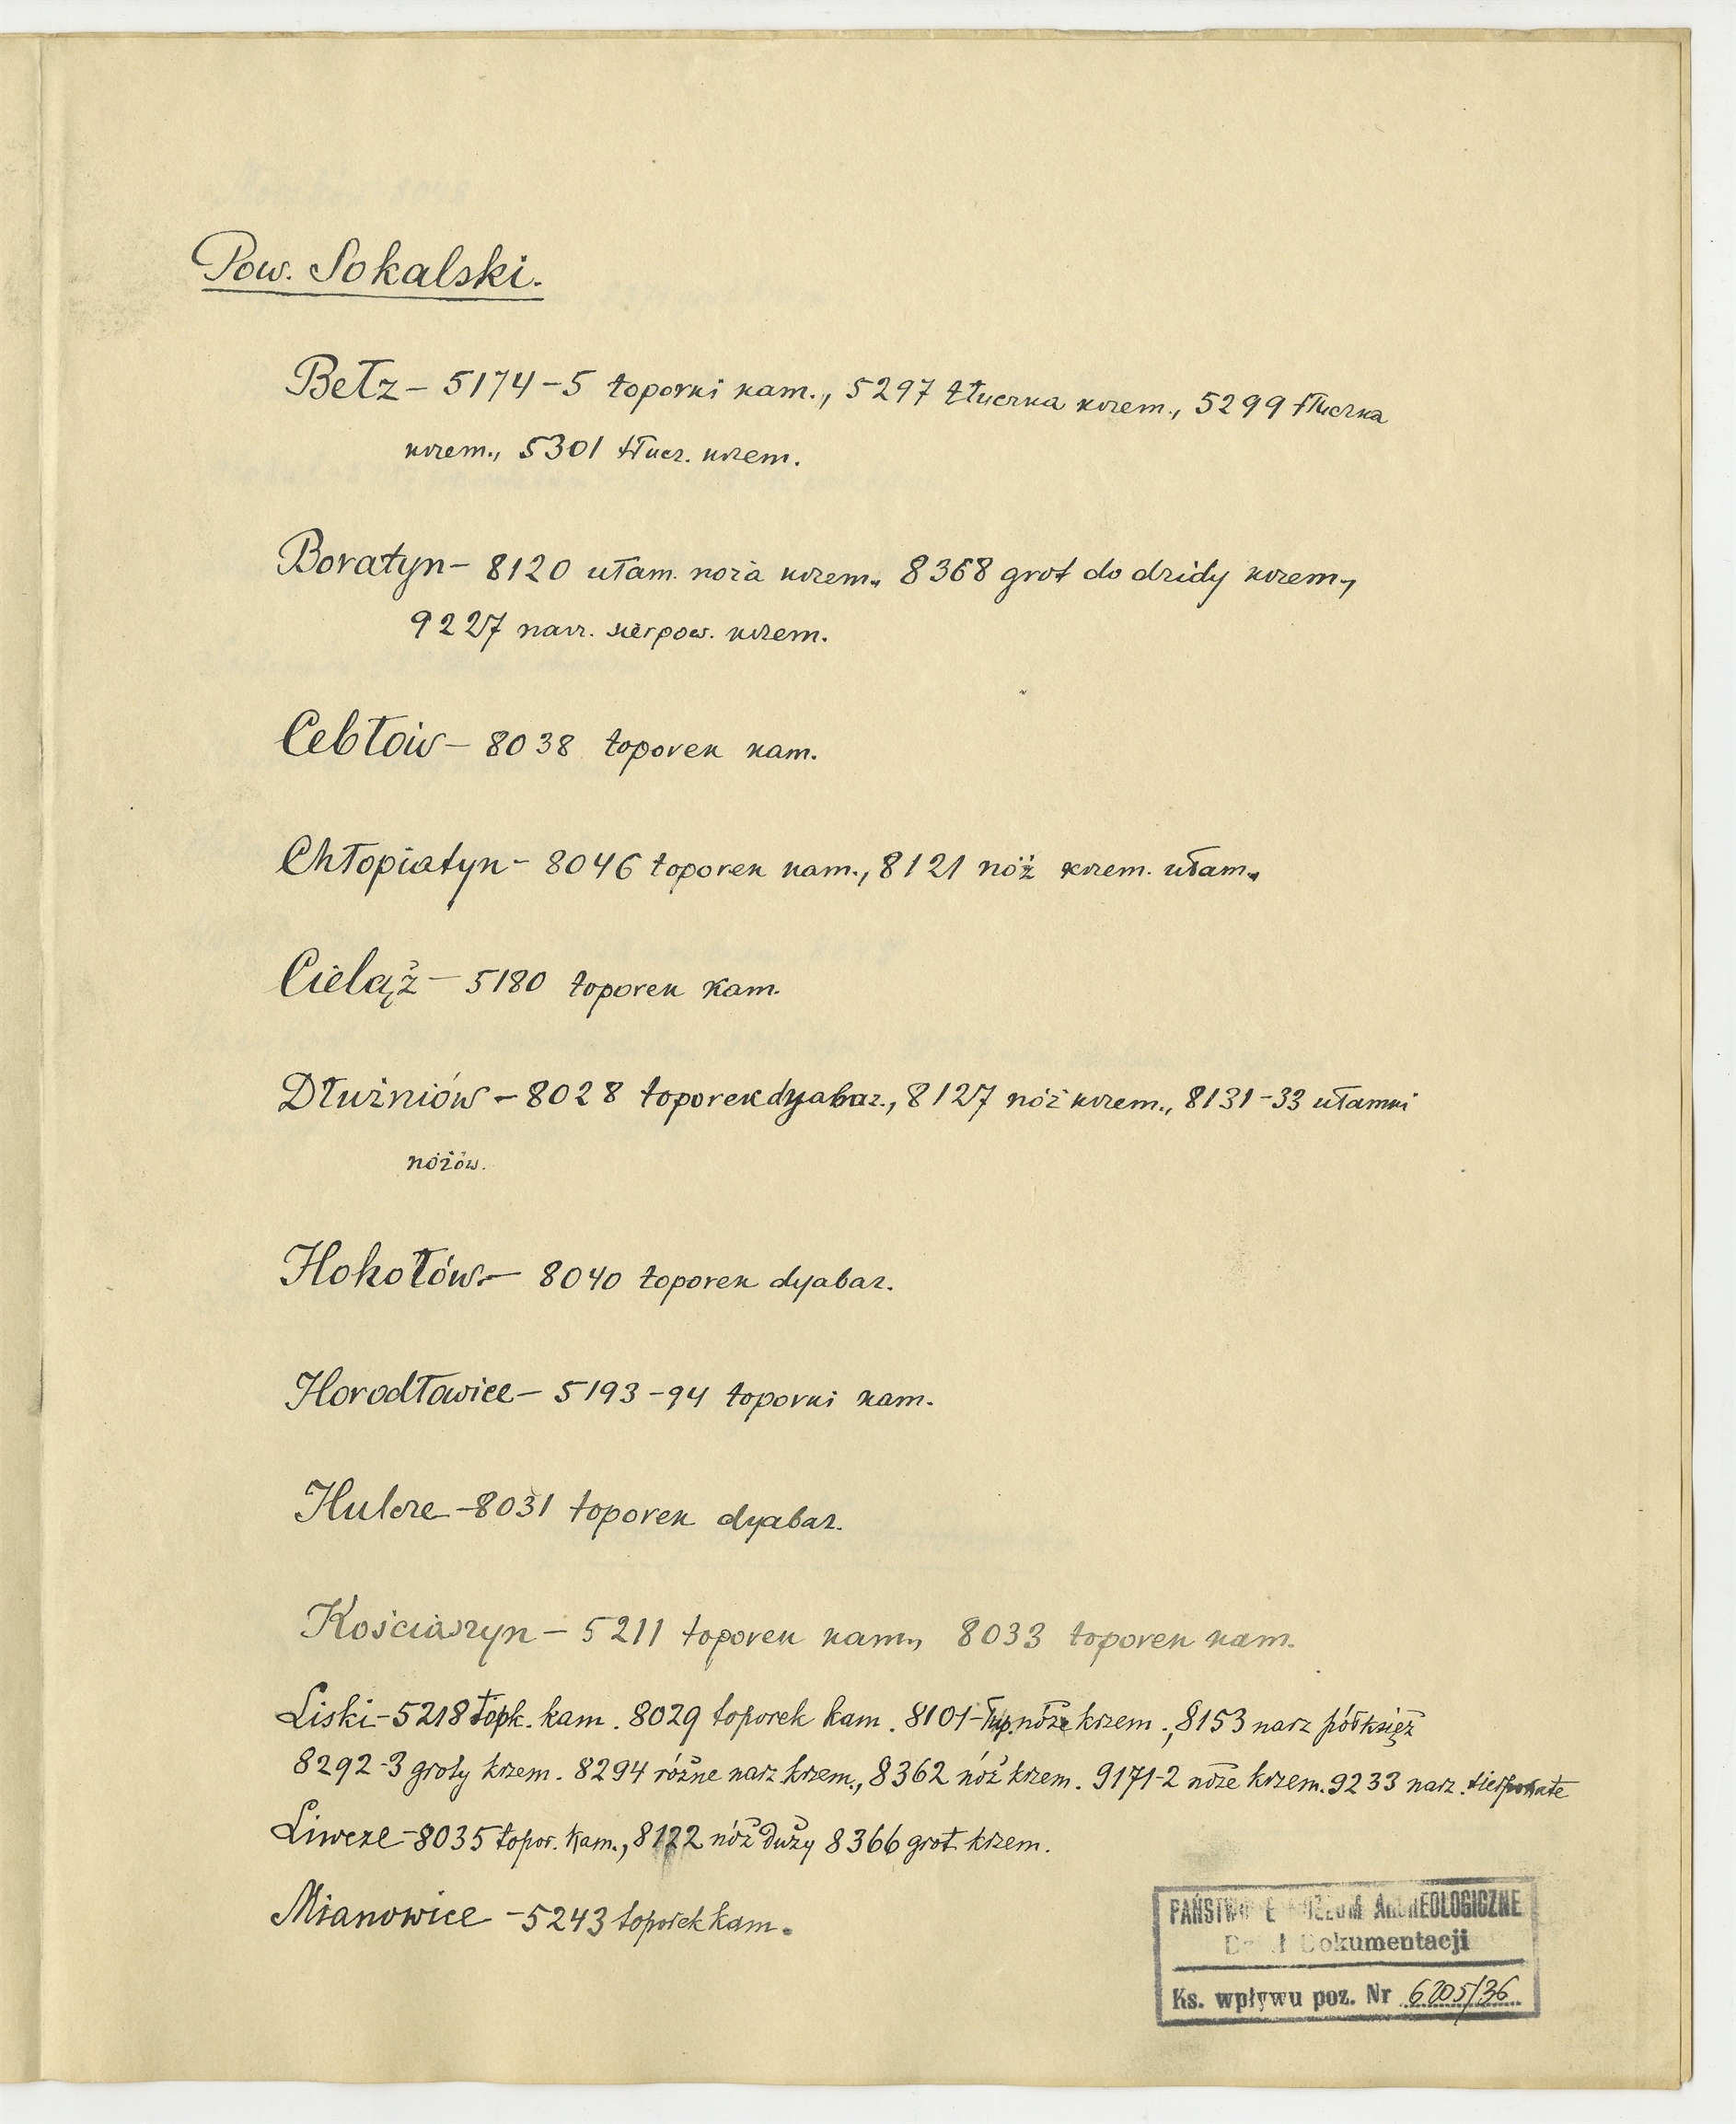 Pow. Sokalski.
Bełz – 5174–5 toporki kam., 5297 tłuczka krzem., 5299 tłuczka
krzem., 5301 tłucz. krzem.
Boratyn – 8120 ułam. noża krzem., 8368 grot do dzidy krzem.,
9227 narz. sierpow. krzem.
Cebłów – 8038 toporek kam.
Chłopiatyn – 8046 toporek kam., 8121 nóż krzem. ułam.
Cieląż – 5180 toporek kam.
Dłużniów – 8028 toporek dyabaz., 8127 nóż krzem., 8131–33 ułamki
nożów.
Hohołów – 8040 toporek dyabaz.
Horodłowice – 5193–94 toporki kam.
Hulcze – 8031 toporek dyabaz.
Kościaszyn – 5211 toporek kam., 8033 toporek kam.
Liski – 5218 topk. kam. 8029 toporek kam. 8101 – noże krzem., 8153 narz półksięż
8292-3 groty krzem. 8294 różne narz krzem., 8362 nóż krzem. 9171-2 noże krzem. 9233 narz.
Liwcze – 8035 topor. kam., 8122 nóż duży 8366 grot krzem.
Mianowice – 5243 toporek kam.
PAŃSTWOWE MUZEUM ARCHEOLOGICZNE
Dział Dokumentacji
Ks. wpływu poz. Nr 6205/36